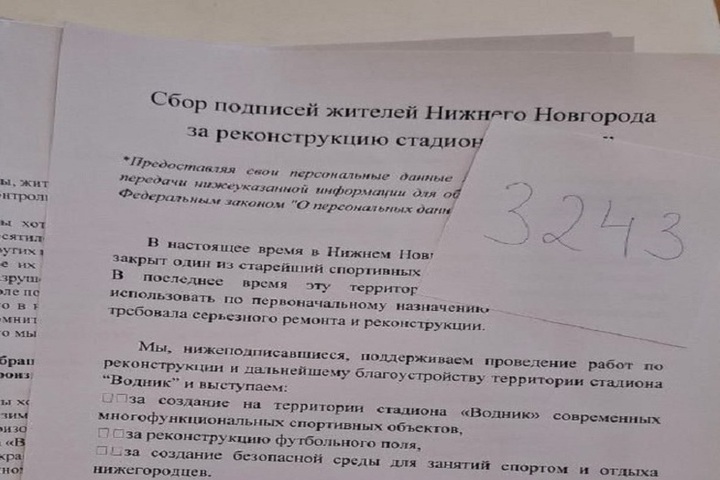 Сбор подписей жителей Нижнего Новгорода
за реконструкцию стадион
*Предоставляя свои персональные данные
передачи нижеуказанной информации для об
Федеральным законом "О персональных данн
3243
В настоящее время в Нижнем Нов
закрыт один из старейший спортивных
В последнее время эту территор
использовать по первоначальному назначению
требовала серьезного ремонта и реконструкции.
Мы, нижеподписавшиеся, поддерживаем проведение работ по
реконструкции и дальнейшему благоустройству территории стадиона
“Водник” и выступаем:
за создание на территории стадиона «Водник» современных
многофункциональных спортивных объектов,
за реконструкцию футбольного поля,
за создание безопасной среды для занятий спортом и отдыха
нижегородцев.